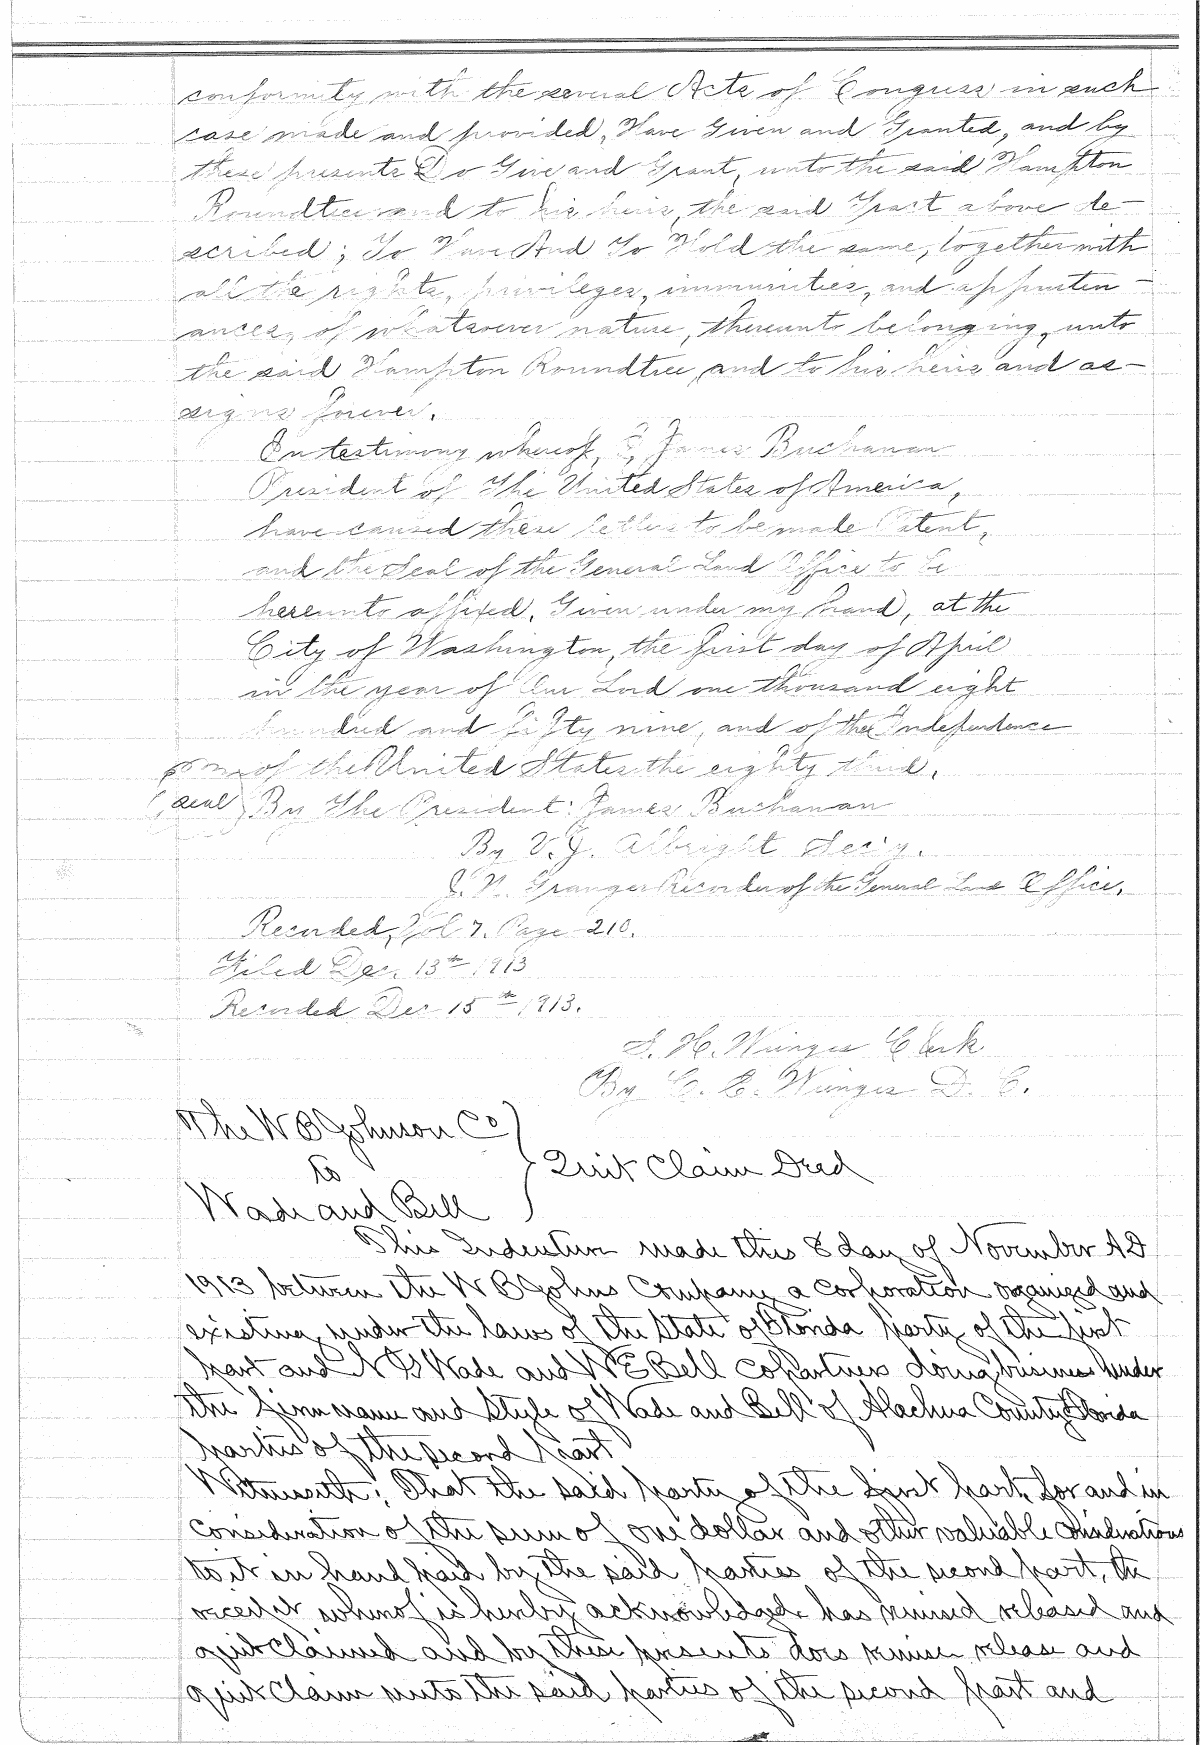 conformity with the several Acts of Congress in such
case made and provided, Have Given and Granted, and by
these presents Do Give and Grant, unto the said Hampton
Roundtree and to his heirs, the said Tract above de-
scribed; To Have And To Hold the same, together with
all the rights, privileges, immunities, and appurten-
ances, of whatsoever nature, thereunto belonging, unto
the said Hampton Roundtree, and to his heirs and as-
signs forever.
In testimony whereof, I, James Buchanan
President of The United States of America,
have caused these letters to be made Patent,
and the Seal of the General Land Office to be
hereunto affixed. Given under my hand, at the
City of Washington, the first day of April
in the year of Our Lord one thousand eight
hundred and fifty nine, and of the Independence
of the United States the eighty third.
Seal By The President: James Buchanan
By V. J. Albright Sec'y.
J. N. Granger Recorder of the General Land Office.
Recorded, Vol 7, Page 210.
Filed Dec. 13th 1913
Recorded Dec 15th 1913.
S. H. Wienges Clerk
By C. E. Wienges D. C.
The W B Johnson Co
to } Quit Claim Deed
Wade and Bell
This Indenture made this 8 day of November AD
1913 between the W B Johns Company a corporation organized and
existing under the laws of the State of Florida party of the first
part and N G Wade and W E Bell copartners doing business under
the firm name and Style of Wade and Bell of Alachua County Florida
parties of the second part
Witnesseth; That the said party of the first part, for and in
consideration of the sum of one dollar and other valuable considerations
to it in hand paid by the said parties of the second part, the
receipt whereof is hereby acknowledged, has remised released and
quit claimed and by these presents does remise release and
quit claim unto the said parties of the second part and